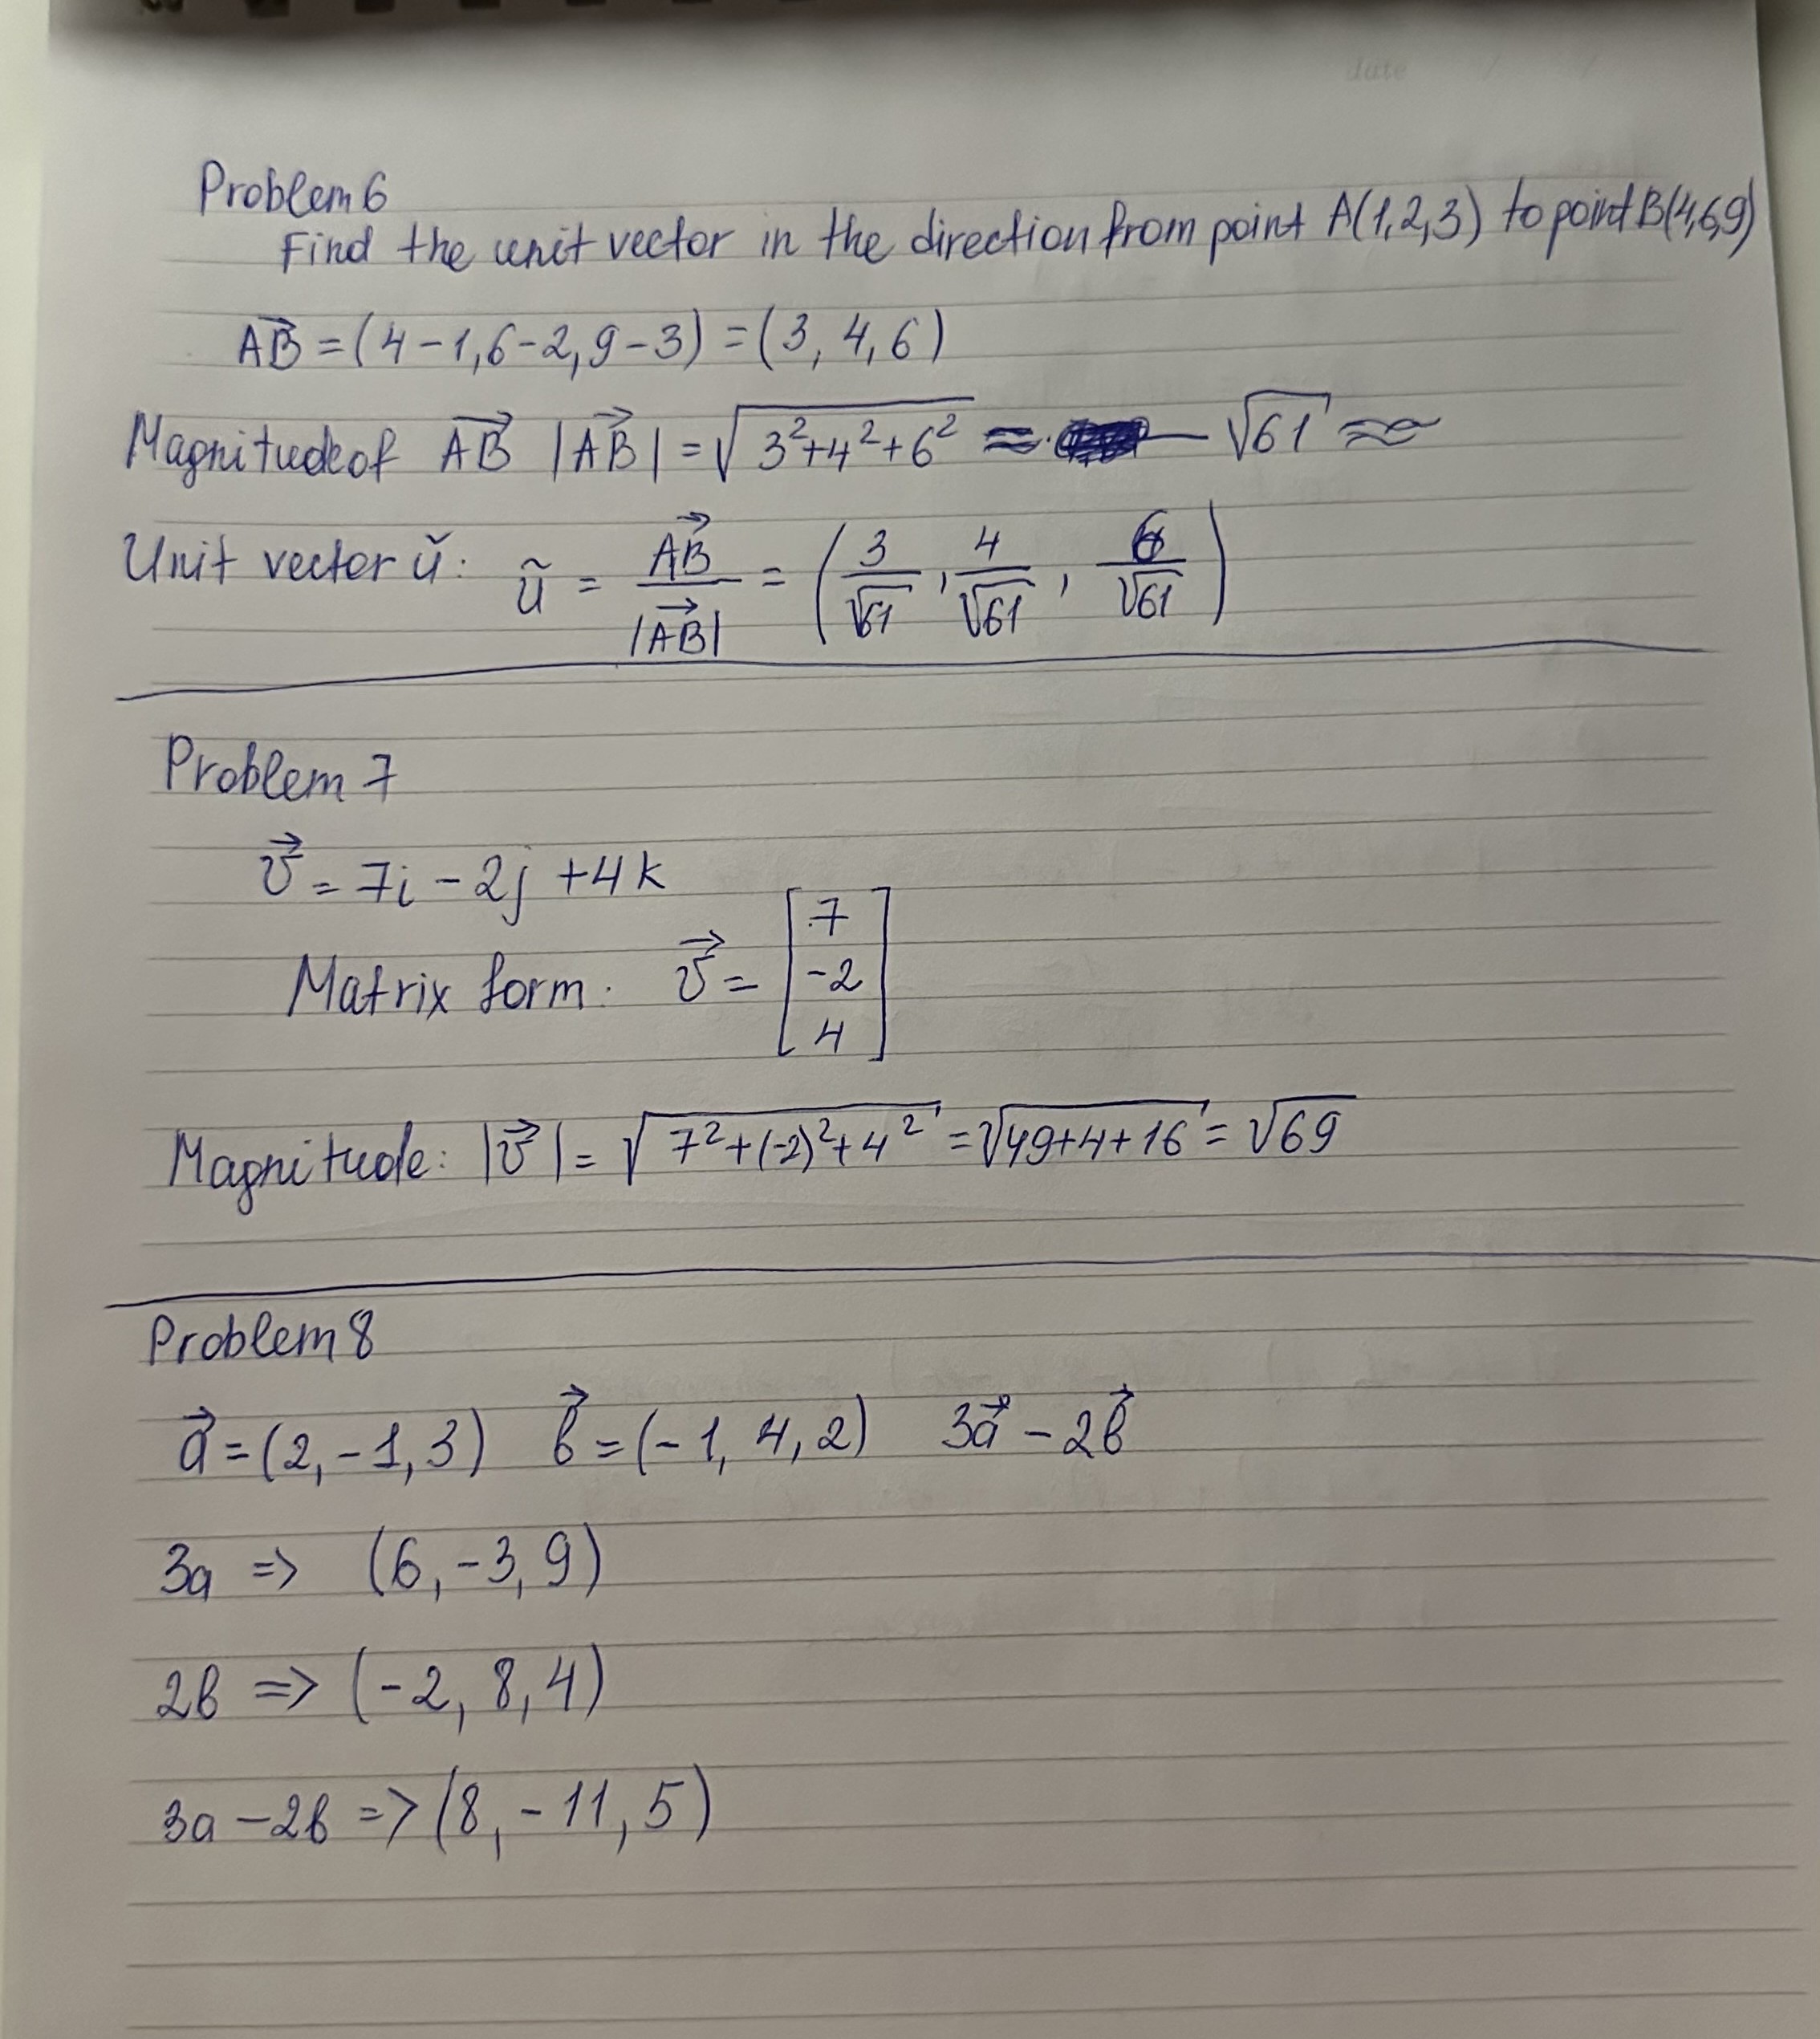 date / /
Problem 6
Find the unit vector in the direction from point A(1,2,3) to point B(4,6,9)
A\vec{B} = (4-1,6-2,9-3) = (3, 4, 6)
Magnitude of \vec{AB} |\vec{AB}| = √(3²+4²+6²) ≈ — √61 ≈
Unit vector ǔ: ũ = \vec{AB} / |\vec{AB}| = (3/√61, 4/√61, 6/√61)
Problem 7
\vec{v} = 7i - 2j + 4k
Matrix form. \vec{v} = [7
-2
4]
Magnitude: |\vec{v}| = √(7²+(-2)²+4²) = √(49+4+16) = √69
Problem 8
\vec{a} = (2, -1, 3) \vec{b} = (-1, 4, 2) 3\vec{a} - 2\vec{b}
3a => (6, -3, 9)
2b => (-2, 8, 4)
3a - 2b => (8, -11, 5)